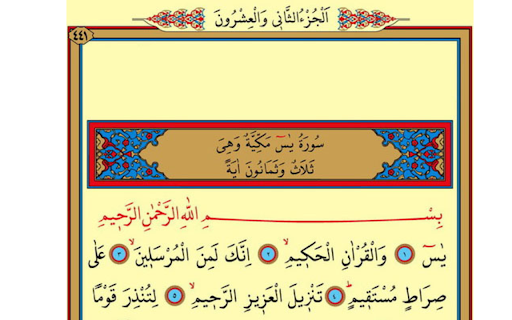 اَلْجُزْءُ الثَّانٖى وَالْعِشْرُونَ
٤٤١
سُورَةُ يٰسٓ مَكِّيَّةٌ وَهِىَ
ثَلَاثٌ وَثَمَانُونَ اٰيَةً
بِسْمِ اللّٰهِ الرَّحْمٰنِ الرَّحٖيمِ
يٰسٓ ١ وَالْقُرْاٰنِ الْحَكٖيمِۙ ٢ اِنَّكَ لَمِنَ الْمُرْسَلٖينَۙ ٣ عَلٰى
صِرَاطٍ مُسْتَقٖيمٍؕ ٤ تَنْزٖيلَ الْعَزٖيزِ الرَّحٖيمِۙ ٥ لِتُنْذِرَ قَوْمًا